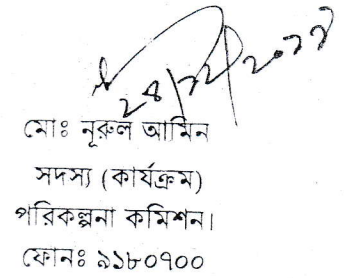 ২৪/১২/২০১৯
মোঃ নূরুল আমিন
সদস্য (কার্যক্রম)
পরিকল্পনা কমিশন।
ফোনঃ ৯১৮০৭০০